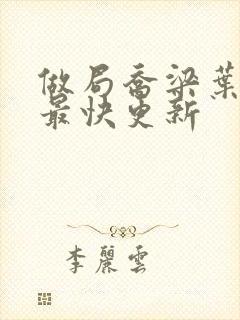 做局喬梁葉
最快更新
李麗雲